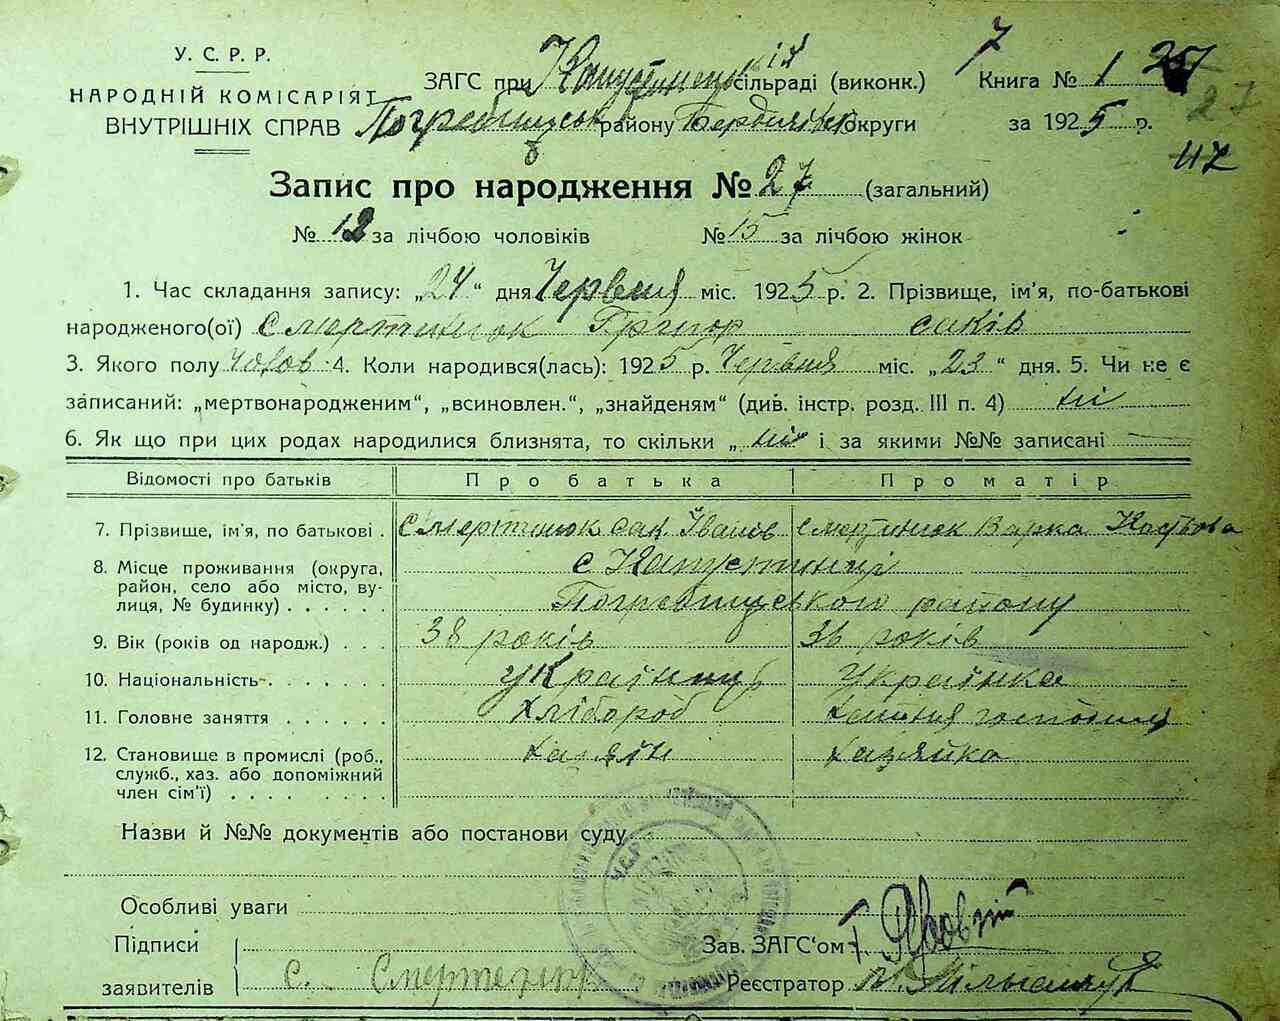 У. С. Р. Р.
НАРОДНІЙ КОМІСАРІЯТ
ВНУТРІШНІХ СПРАВ
ЗАГС при сільраді (виконк.)
району округи
7 Книга № 1
за 1925 р.
47
Запис про народження № 27 (загальний)
№ 12 за лічбою чоловіків № 15 за лічбою жінок
1. Час складання запису: „24“ дня Червня міс. 1925 р. 2. Прізвище, ім'я, по-батькові
народженого(ої) Смертинюк Григор саків
3. Якого полу 4. Коли народився(лась): 1925 р. Червня міс. „23“ дня. 5. Чи не є
записаний: „мертвонародженим“, „всиновлен.“, „знайденям“ (див. інстр. розд. III п. 4) ні
6. Як що при цих родах народилися близнята, то скільки „ ні і за якими №№ записані —
Відомості про батьків Про батька Про матір
7. Прізвище, ім'я, по батькові . Смертинюк сак Іванів Смертинюк Варка
8. Місце проживання (округа,
район, село або місто, ву-
лиця, № будинку) . . . . . .
с Капустинці
Погребищуського району
9. Вік (років од народж.) . . . 38 років 36 років
10. Національність . . . . . . Українець Українка
11. Головне заняття . . . . . . хлібороб
12. Становище в промислі (роб.,
служб., хаз. або допоміжний
член сім'ї) . . . . . . . .
хазяїн хазяйка
Назви й №№ документів або постанови суду
Особливі уваги
Підписи
заявителів С.
Зав. ЗАГС'ом
Реєстратор
У.С.Р.Р.